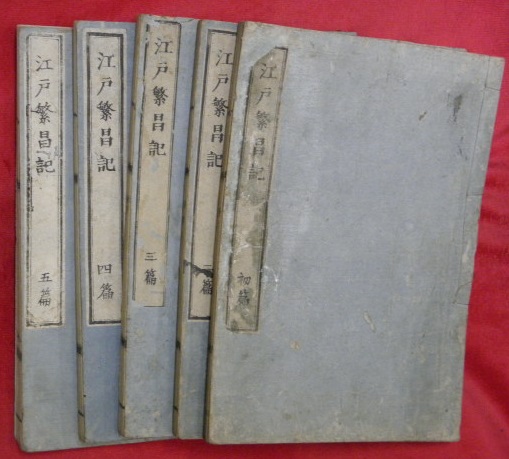 江戸繁昌記
初篇
江戸繁昌記
二篇
江戸繁昌記
三篇
江戸繁昌記
四篇
江戸繁昌記
五篇